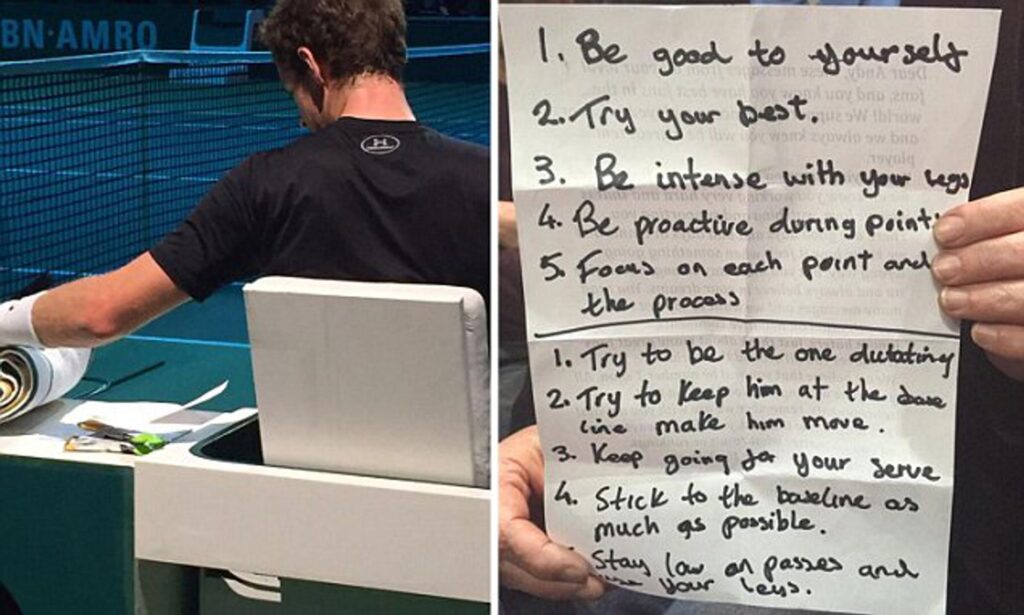 BN·AMRO
1. Be good to yourself
2. Try your best.
3. Be intense with your legs
4. Be proactive during point
5. Focus on each point and
the process
1. Try to be the one dictating
2. Try to keep him at the base
line make him move.
3. Keep going for your serve
4. Stick to the baseline as
much as possible.
Stay low on passes and
use your legs.